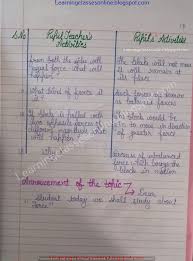 Learningclassesonline.blogspot.com
S.No
Pupil Teacher's Activities
Pupil's Activities
from both the sides with equal force what will happen?
The block will not move it will remains at place
What kind of force is it?
Such forces are known as balanced forces
If block is pulled with two opposite forces of different magnitude what will happen?
The block would be to move in direction of greater force
Why
Because of unbalanced force which brings the block in motion
Announcement of the topic
Dear student today we shall study about "force"